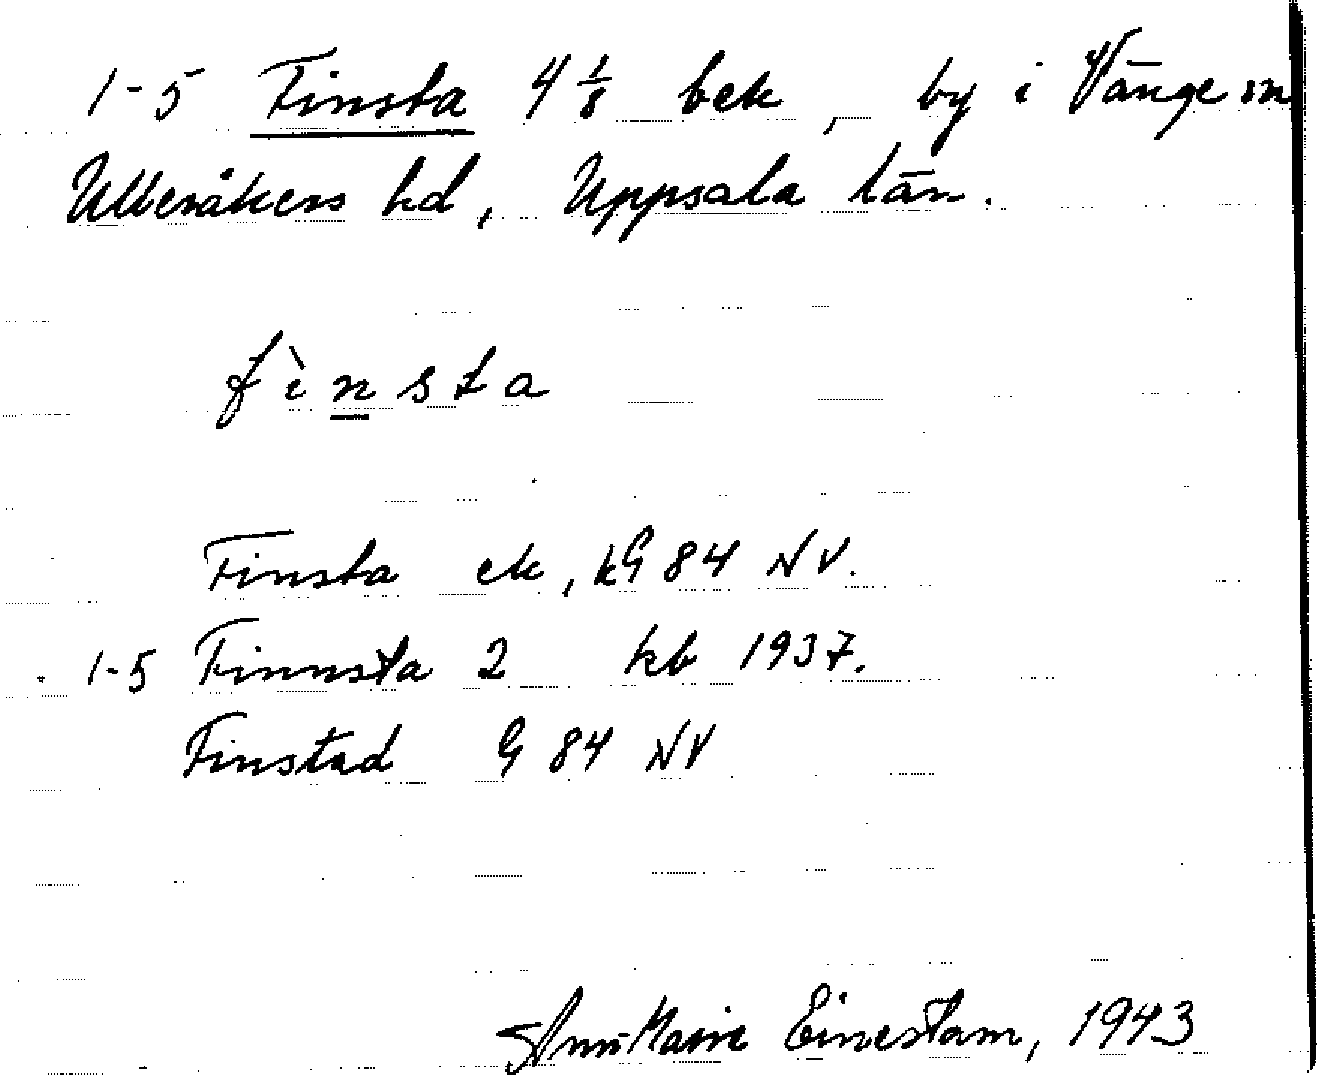 1-5 Finsta 4 1/8 bek, by i Vänge sn
Ulleråkers hd, Uppsala län.
fìnsta
Finsta ek, kG 84 NV.
1-5 Finnsta 2 kb 1937.
Finstad G 84 NV
Ann-Marie Einestam, 1943